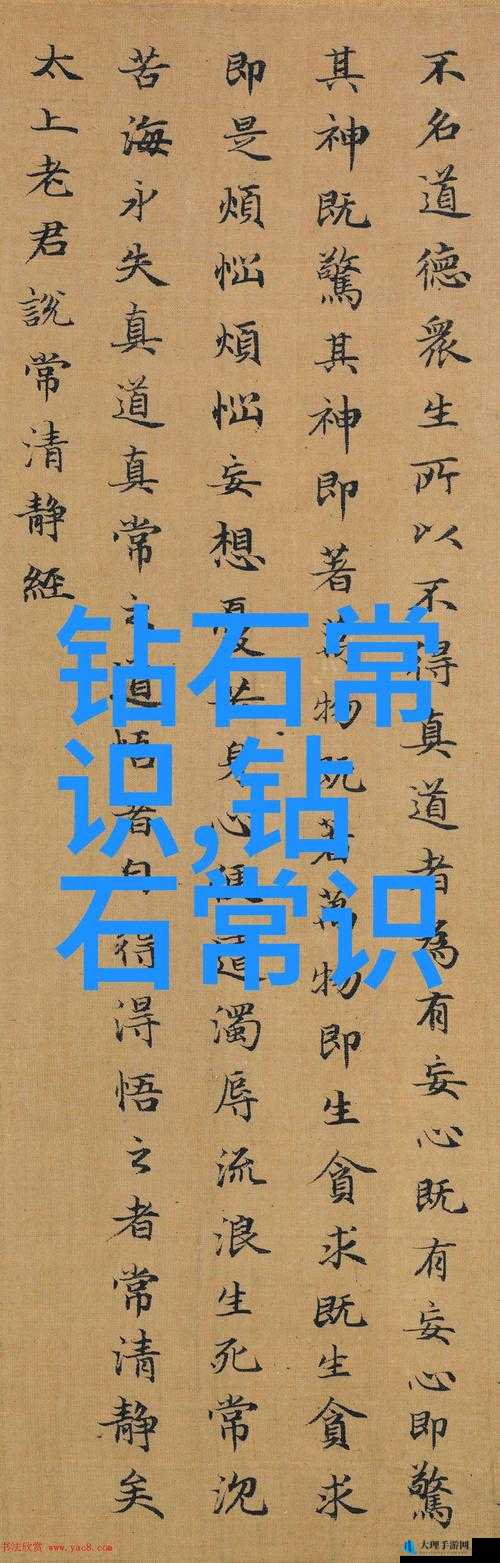 不名道德眾生所以不得真道者為有妄心既有妄心即驚
其神既驚其神即著萬物既著萬物即生貪求既生貪求
即是煩惱煩惱妄想憂苦身心便遭濁辱流浪生死常沉
苦海永失真道真常之道悟者自得得悟之者常清靜矣
太上老君說常清靜經
钻石常
识,钻
石常识
书法欣赏 www.yac8.com
大理手游网